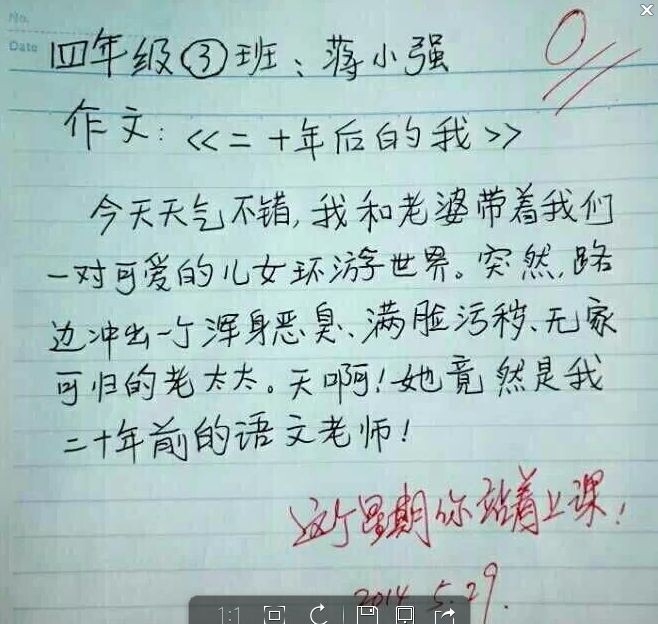 No.
Date
四年级③班：蒋小强
0
作文：《二十年后的我》
今天天气不错，我和老婆带着我们
一对可爱的儿女环游世界。突然，路
边冲出一个浑身恶臭、满脸污秽、无家
可归的老太太。天啊！她竟然是我
二十年前的语文老师！
这个星期你站着上课！
2014.5.29.
1:1